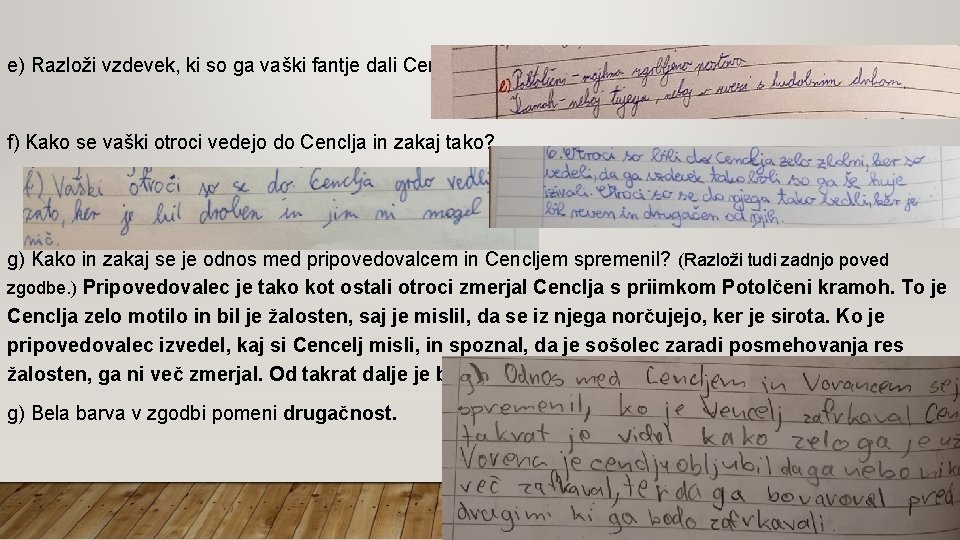 e) Razloži vzdevek, ki so ga vaški fantje dali Cen
e) Potolčeni - majhna zgrbljena postava
Kramoh - nekaj tujega, nekaj v zvezi s hudobnim duhom.
f) Kako se vaški otroci vedejo do Cenclja in zakaj tako?
f) Vaški otroči so se do Cenclja grdo vedli
zato, ker je bil droben in jim ni mogel
nič.
6. Otroci so bili do Cenclja zelo zlobni, ker so
vedeli, da ga vzdevek tako boli so ga še huje
izzivali. Otroci so se do njega tako vedli, ker je
bil reven in drugačen od njih.
g) Kako in zakaj se je odnos med pripovedovalcem in Cencljem spremenil? (Razloži tudi zadnjo poved
zgodbe.) Pripovedovalec je tako kot ostali otroci zmerjal Cenclja s priimkom Potolčeni kramoh. To je
Cenclja zelo motilo in bil je žalosten, saj je mislil, da se iz njega norčujejo, ker je sirota. Ko je
pripovedovalec izvedel, kaj si Cencelj misli, in spoznal, da je sošolec zaradi posmehovanja res
žalosten, ga ni več zmerjal. Od takrat dalje je b
g) Odnos med Cencljem in Vorancem se j
spremenil, ko je Vencelj zafrkaval Cen
takrat je videl kako zelo ga je
je cenclju obljubil da ga nebo nik
več zafrkaval, ter da ga bo varoval pred
drugimi ki ga bodo zafrkavali.
g) Bela barva v zgodbi pomeni drugačnost.